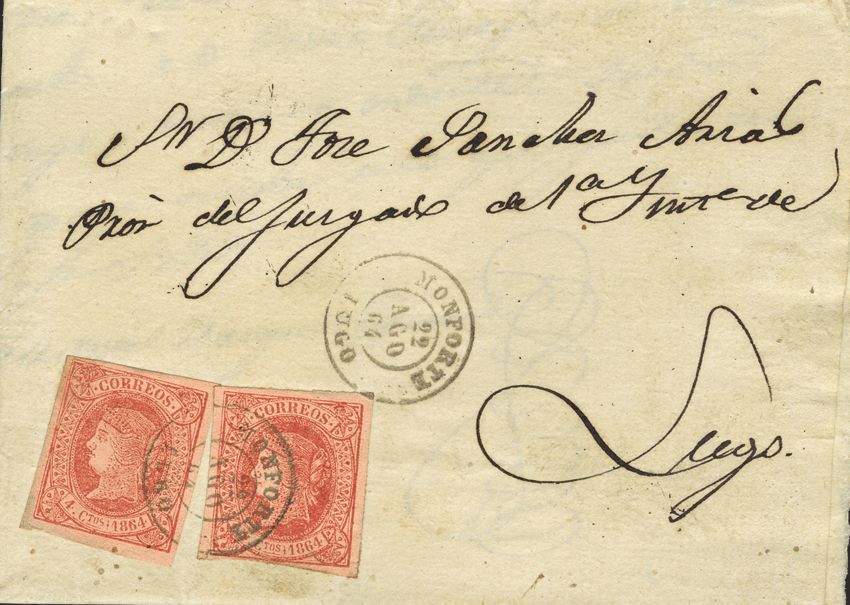 Sr D. Jose Sanchez Arias
Pror del Juzgado de 1a Ynta de
Lugo.
MONFORTE
22
AGO
64
LUGO
CORREOS
4. CTOS 1864
CORREOS
CTOS 1864
MONFORTE
AGO
64